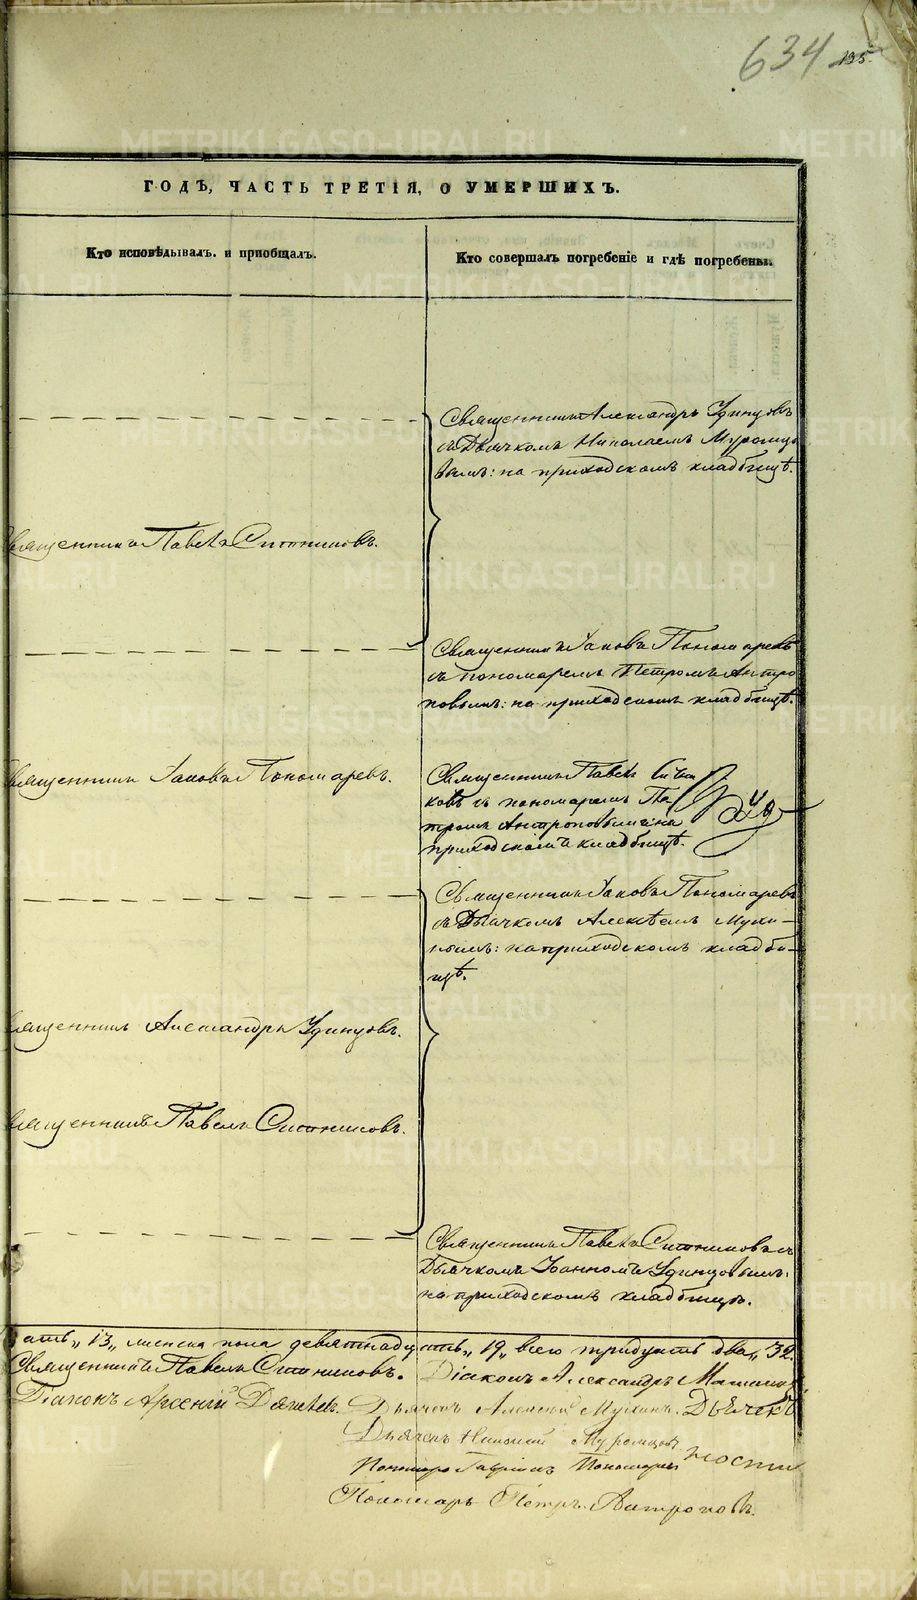 634 195.
ГОДЪ, ЧАСТЬ ТРЕТІЯ, О УМЕРШИХЪ.
Кто исповѣдывалъ и приобщалъ.
Кто совершалъ погребеніе и гдѣ погребены.
Священникъ Александръ Удинцовъ
съ Дьячкомъ Николаемъ Муромцо
вымъ: на приходскомъ кладбищѣ.
священникъ Павелъ Ситниковъ.
Священникъ Іаковъ Пономаревъ
съ пономаремъ Петромъ Антро
повымъ: на приходскомъ кладбищѣ.
священникъ Іаковъ Пономаревъ.
Священникъ Павелъ Ситни
ковъ съ пономаремъ Пе
тромъ Антроповымъ: на
приходскомъ кладбищѣ.
Священникъ Іаковъ Пономаревъ
съ Дьячкомъ Алексѣемъ Мухи-
нымъ: на приходскомъ кладби-
щѣ.
священникъ Александръ Удинцовъ.
священникъ Павелъ Ситниковъ.
Священникъ Павелъ Ситниковъ съ
Дьячкомъ Іоанномъ Удинцовымъ:
на приходскомъ кладбищѣ.
дать „13„ женска пола девятнадцать „19„ всего тридцать два „32.
Священникъ Павелъ Ситниковъ. Діаконъ Александръ
Діаконъ Арсеній Дьячекъ Алексій Мухинъ. Дьячекъ
Дьячекъ Николай Муромцовъ
Пономарь Гавріилъ Пономаревъ
Пономарь Петръ Антроповъ.
METRIKI.GASO-URAL.RU